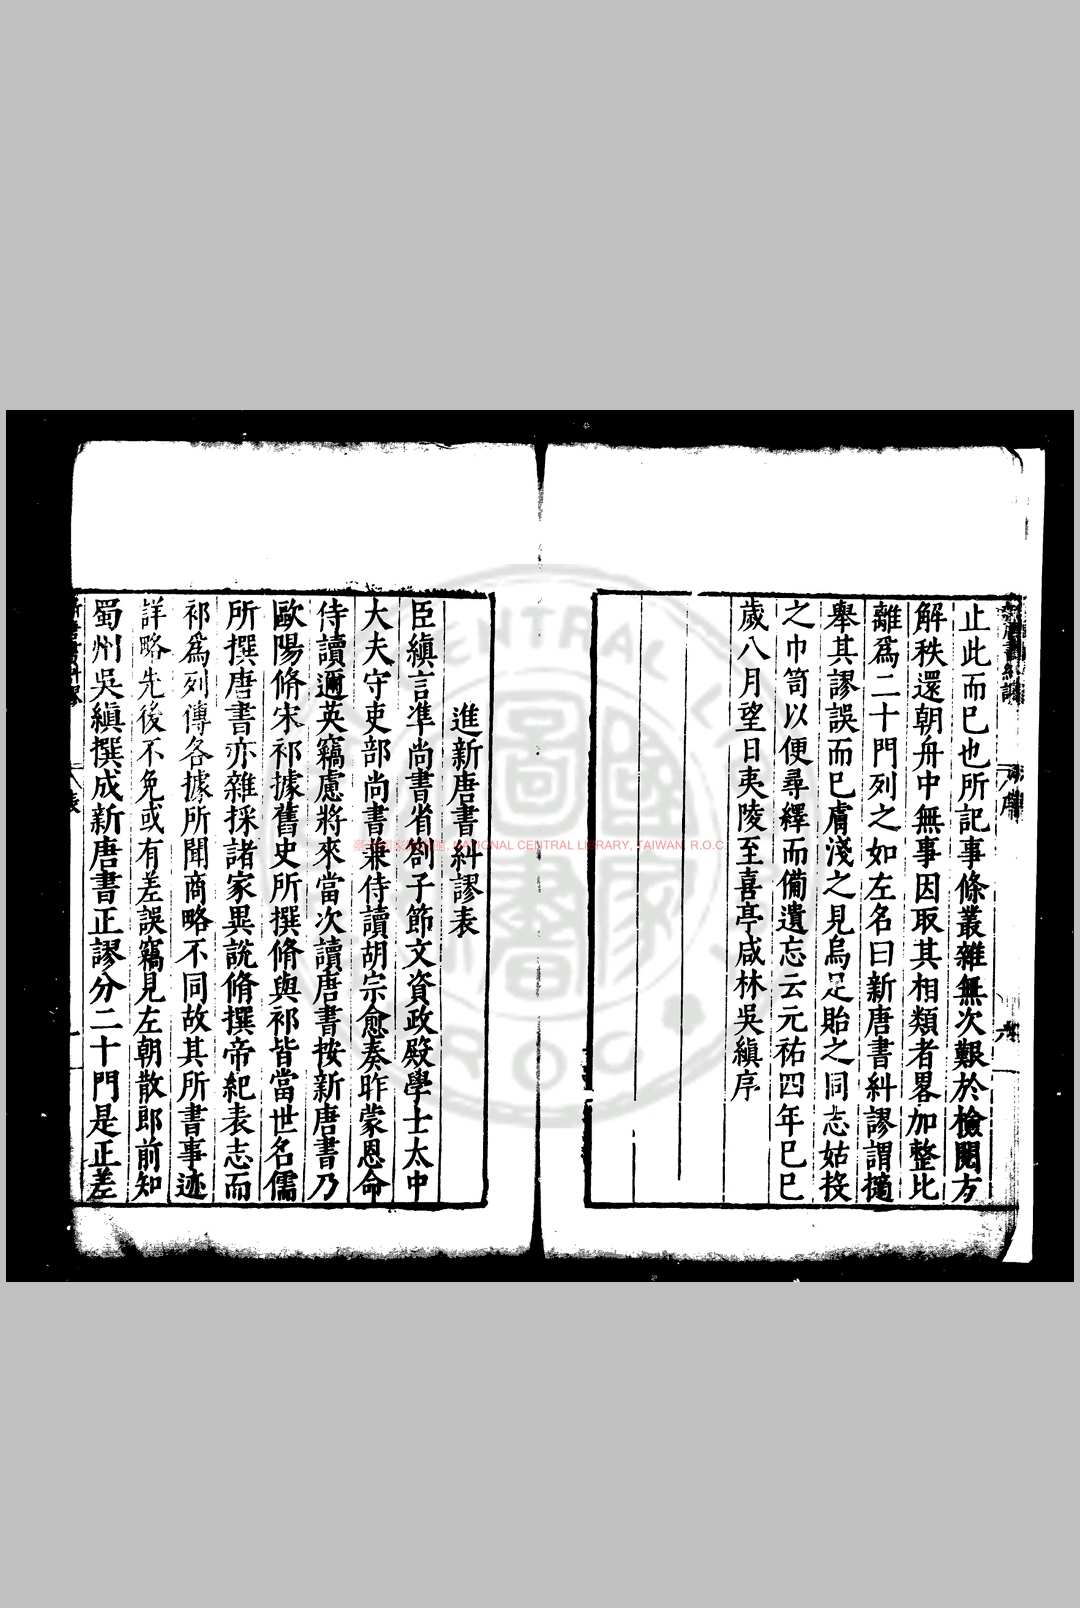 止此而已也所記事條叢雜無次艱於檢閱方
解秩還朝舟中無事因取其相類者畧加整比
離爲二十門列之如左名曰新唐書糾謬謂擿
舉其謬誤而已膚淺之見烏足貽之同志姑投
之巾笥以便尋繹而僃遺忘云元祐四年巳巳
歲八月望日夷陵至喜亭咸林吳縝序
進新唐書糾謬表
臣縝言準尚書省劄子節文資政殿學士太中
大夫守吏部尚書兼侍讀胡宗愈奏昨蒙恩命
侍讀邇英竊慮將來當次讀唐書按新唐書乃
歐陽脩宋祁據舊史所撰脩與祁皆當世名儒
所撰唐書亦雜採諸家異說脩撰帝紀表志而
祁爲列傳各據所聞商略不同故其所書事迹
詳略先後不免或有差誤竊見左朝散郎前知
蜀州吳縝撰成新唐書正謬分二十門是正差
NATIONAL CENTRAL LIBRARY, TAIWAN R.O.C.